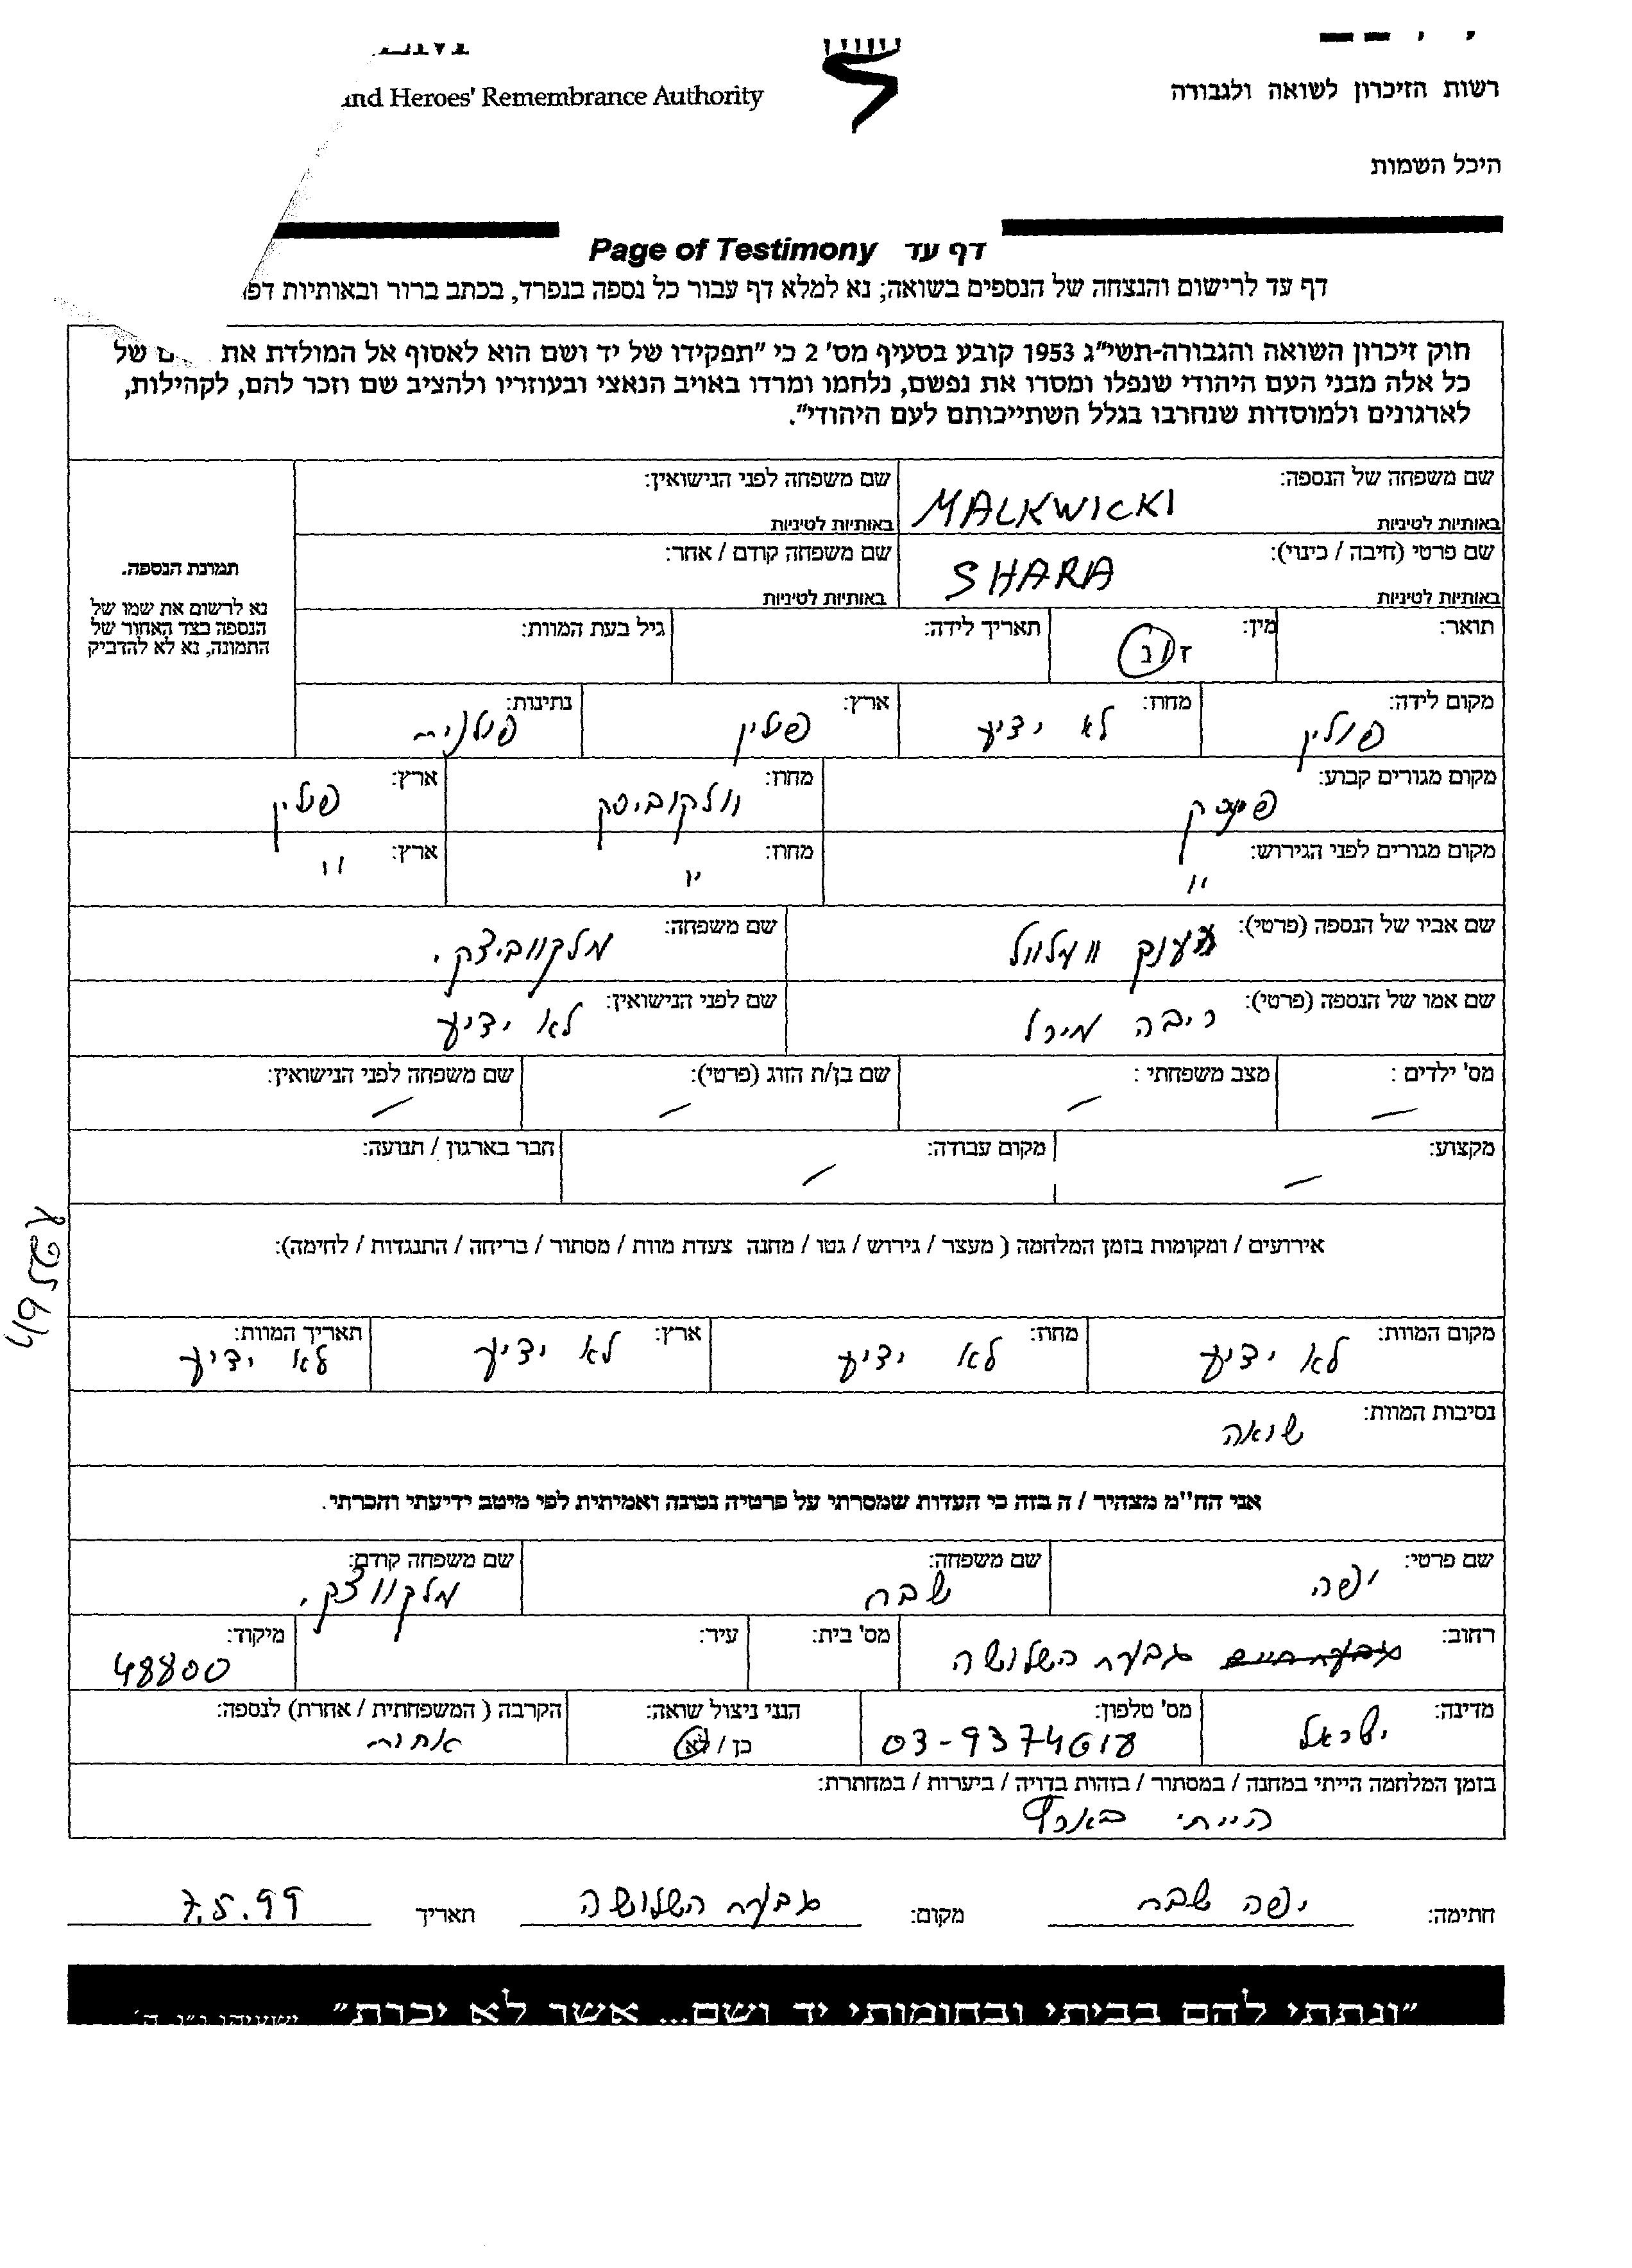 and Heroes' Remembrance Authority
רשות הזיכרון לשואה ולגבורה
היכל השמות
Page of Testimony דף עד
דף עד לרישום והנצחה של הנספים בשואה; נא למלא דף עבור כל נספה בנפרד, בכתב ברור ובאותיות
חוק זיכרון השואה והגבורה-תשי"ג 1953 קובע בסעיף מס' 2 כי "תפקידו של יד ושם הוא לאסוף אל המולדת את של
כל אלה מבני העם היהודי שנפלו ומסרו את נפשם, נלחמו ומרדו באויב הנאצי ובעוזריו ולהציב שם וזכר להם, לקהילות,
לארגונים ולמוסדות שנחרבו בגלל השתייכותם לעם היהודי".
שם משפחה של הנספה: שם משפחה לפני הנישואין:
MALKWICKI
באותיות לטיניות באותיות לטיניות
שם פרטי (חיבה / כינוי): שם משפחה קודם / אחר:
SHARA
באותיות לטיניות באותיות לטיניות
תמונת הנספה.
נא לרשום את שמו של
הנספה בצד האחור של
התמונה, נא לא להדביק
תואר: מין: ז / נ תאריך לידה: גיל בעת המוות:
מקום לידה: מחוז: ארץ: נתינות:
פולין לא ידיע פולין פולנית
מקום מגורים קבוע: מחוז: ארץ:
וולקוביסק פולין
מקום מגורים לפני הגירוש: מחוז: ארץ:
" " "
שם אביו של הנספה (פרטי): שם משפחה:
מלקוביצקי
שם אמו של הנספה (פרטי): שם לפני הנישואין:
ריבה מירל לא ידיע
מס' ילדים : מצב משפחתי : שם בן/ת הזוג (פרטי): שם משפחה לפני הנישואין:
— — — —
מקצוע: מקום עבודה: חבר בארגון / תנועה:
— —
אירועים / ומקומות בזמן המלחמה ( מעצר / גירוש / גטו / מחנה צעדת מוות / מסתור / בריחה / התנגדות / לחימה):
מקום המוות: מחוז: ארץ: תאריך המוות:
לא ידיע לא ידיע לא ידיע לא ידיע
נסיבות המוות:
שואה
אני הח"מ מצהיר / ה בזה כי העדות שמסרתי על פרטיה נכונה ואמיתית לפי מיטב ידיעתי והכרתי.
שם פרטי: שם משפחה: שם משפחה קודם:
יפה שבח מלקווצקי
רחוב: מס' בית: עיר: מיקוד:
גבעת השלושה 48800
מדינה: מס' טלפון: הנני ניצול שואה: הקרבה ( המשפחתית / אחרת) לנספה:
ישראל כן / לא אחות
בזמן המלחמה הייתי במחנה / במסתור / בזהות בדויה / ביערות / במחתרת:
הייתי בארץ
חתימה: יפה שבח מקום: גבעת השלושה תאריך 7.5.99
"ונתתי להם בביתי ובחומותי יד ושם... אשר לא יכרת" ישעיהו נ"ו, ה'